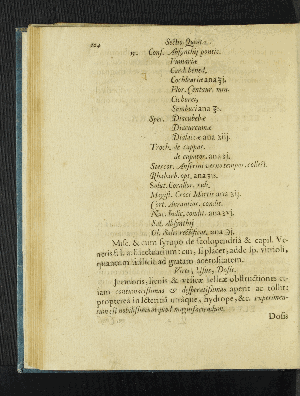 224 Sectio Quinta.
℞. Cons. Absynthij pontic.
Fumariæ
Card. bened.
Cochleariæ ana ℥j.
Flor. Centaur. min.
Cichorei,
Sambuci ana ℥
Spec. Diacubebæ
Diacurcumæ
ana ʒiij.
Troch. de cappar.
de eupator. ana ʒj.
Stercor. Anserin verno tempor. collect.
Rhabarb. opt. ana
Salut. Corallor. rub.
Magist. Croci Martis ana ʒij.
Cort. Aurantior. condit.
Nuc. Indic. condit. ana ʒvj.
Sal. Absynthij
ana ʒj.
Misc. & cum syrupo de scolopendria & capil. Ve-
neris f. l. a. Electuarium: cui, si placet, adde sp. vitrioli,
quantum sufficit ad gratam acetositatem.
Vires, Usus, Dosis.
Jecinoris, lienis & vesicæ felleæ obstructiones et-
iam contumacissimas & desperatissimas aperit ac tollit:
propterea in Icteritia utraque, hydrope, &c. experimen-
tum est nobilissimum ac quod magni faciendum.
Dosis